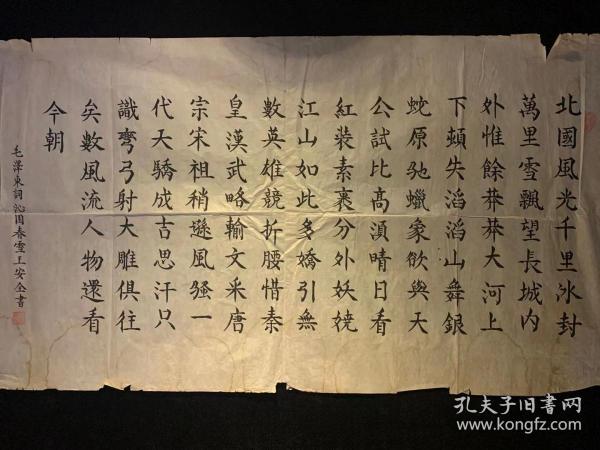 北國風光千里冰封
萬里雪飄望長城内
外惟餘莽莽大河上
下頓失滔滔山舞銀
蛇原馳蠟象欲與天
公試比高湏晴日看
紅裝素裹分外妖嬈
江山如此多嬌引無
數英雄競折腰惜秦
皇漢武略輸文采唐
宗宋祖稍遜風騷一
代天驕成吉思汗只
識彎弓射大雕俱往
矣數風流人物還看
今朝
毛澤東詞沁园春雪王安全書
孔夫子旧書网
www.kongfz.com